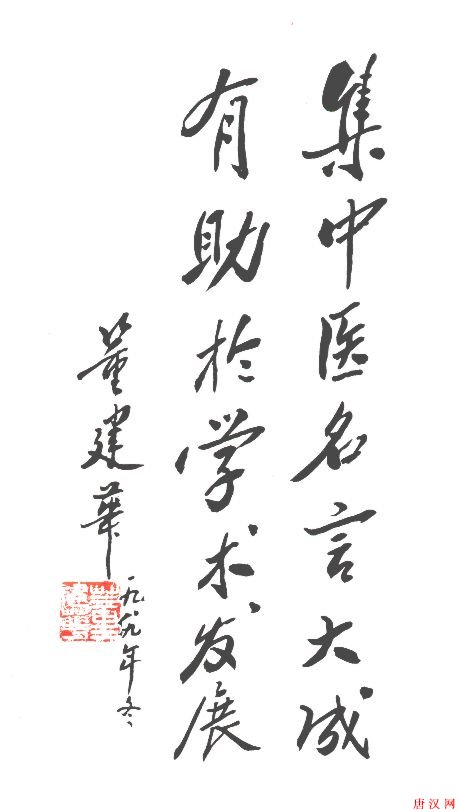 集中医名言大成
有助於学术发展
董建华
一九八九年冬
唐汉网